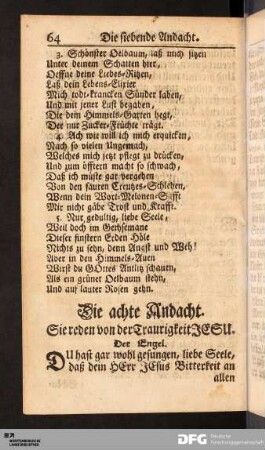 64 Die siebende Andacht.
3. Schönster Oelbaum, laß mich sitzen
Unter deinem Schatten hier,
Oeffne deine Liebes-Ritzen,
Laß dein Lebens-Elixier
Mich todt-krancken Sünder laben,
Und mit jener Lust begaben,
Die dein Himmels-Garten hegt,
Der nur Zucker-Früchte trägt.
4. Ach wie will ich mich erquicken,
Nach so vielen Ungemach,
Welches mich jetzt pflegt zu drücken,
Und zum öfftern macht so schwach,
Daß ich müste gar vergehen
Von den sauren Creutzes-Schlehen,
Wenn dein Wort-Melonen-Safft
Mir nicht gäbe Trost und Krafft.
5. Nur gedultig, liebe Seele,
Weil doch im Gethsemane
Dieser finstern Erden Höle
Nichts zu sehn, denn Angst und Weh!
Aber in den Himmels-Auen
Wirst du GOttes Antlitz schauen,
Als ein grüner Oelbaum stehn,
Und auf lauter Rosen gehn.
Die achte Andacht.
Sie reden von der Traurigkeit JESU.
Der Engel.
DU hast gar wohl gesungen, liebe Seele,
daß dein HErr JEsus Bitterkeit an
allen
DFG